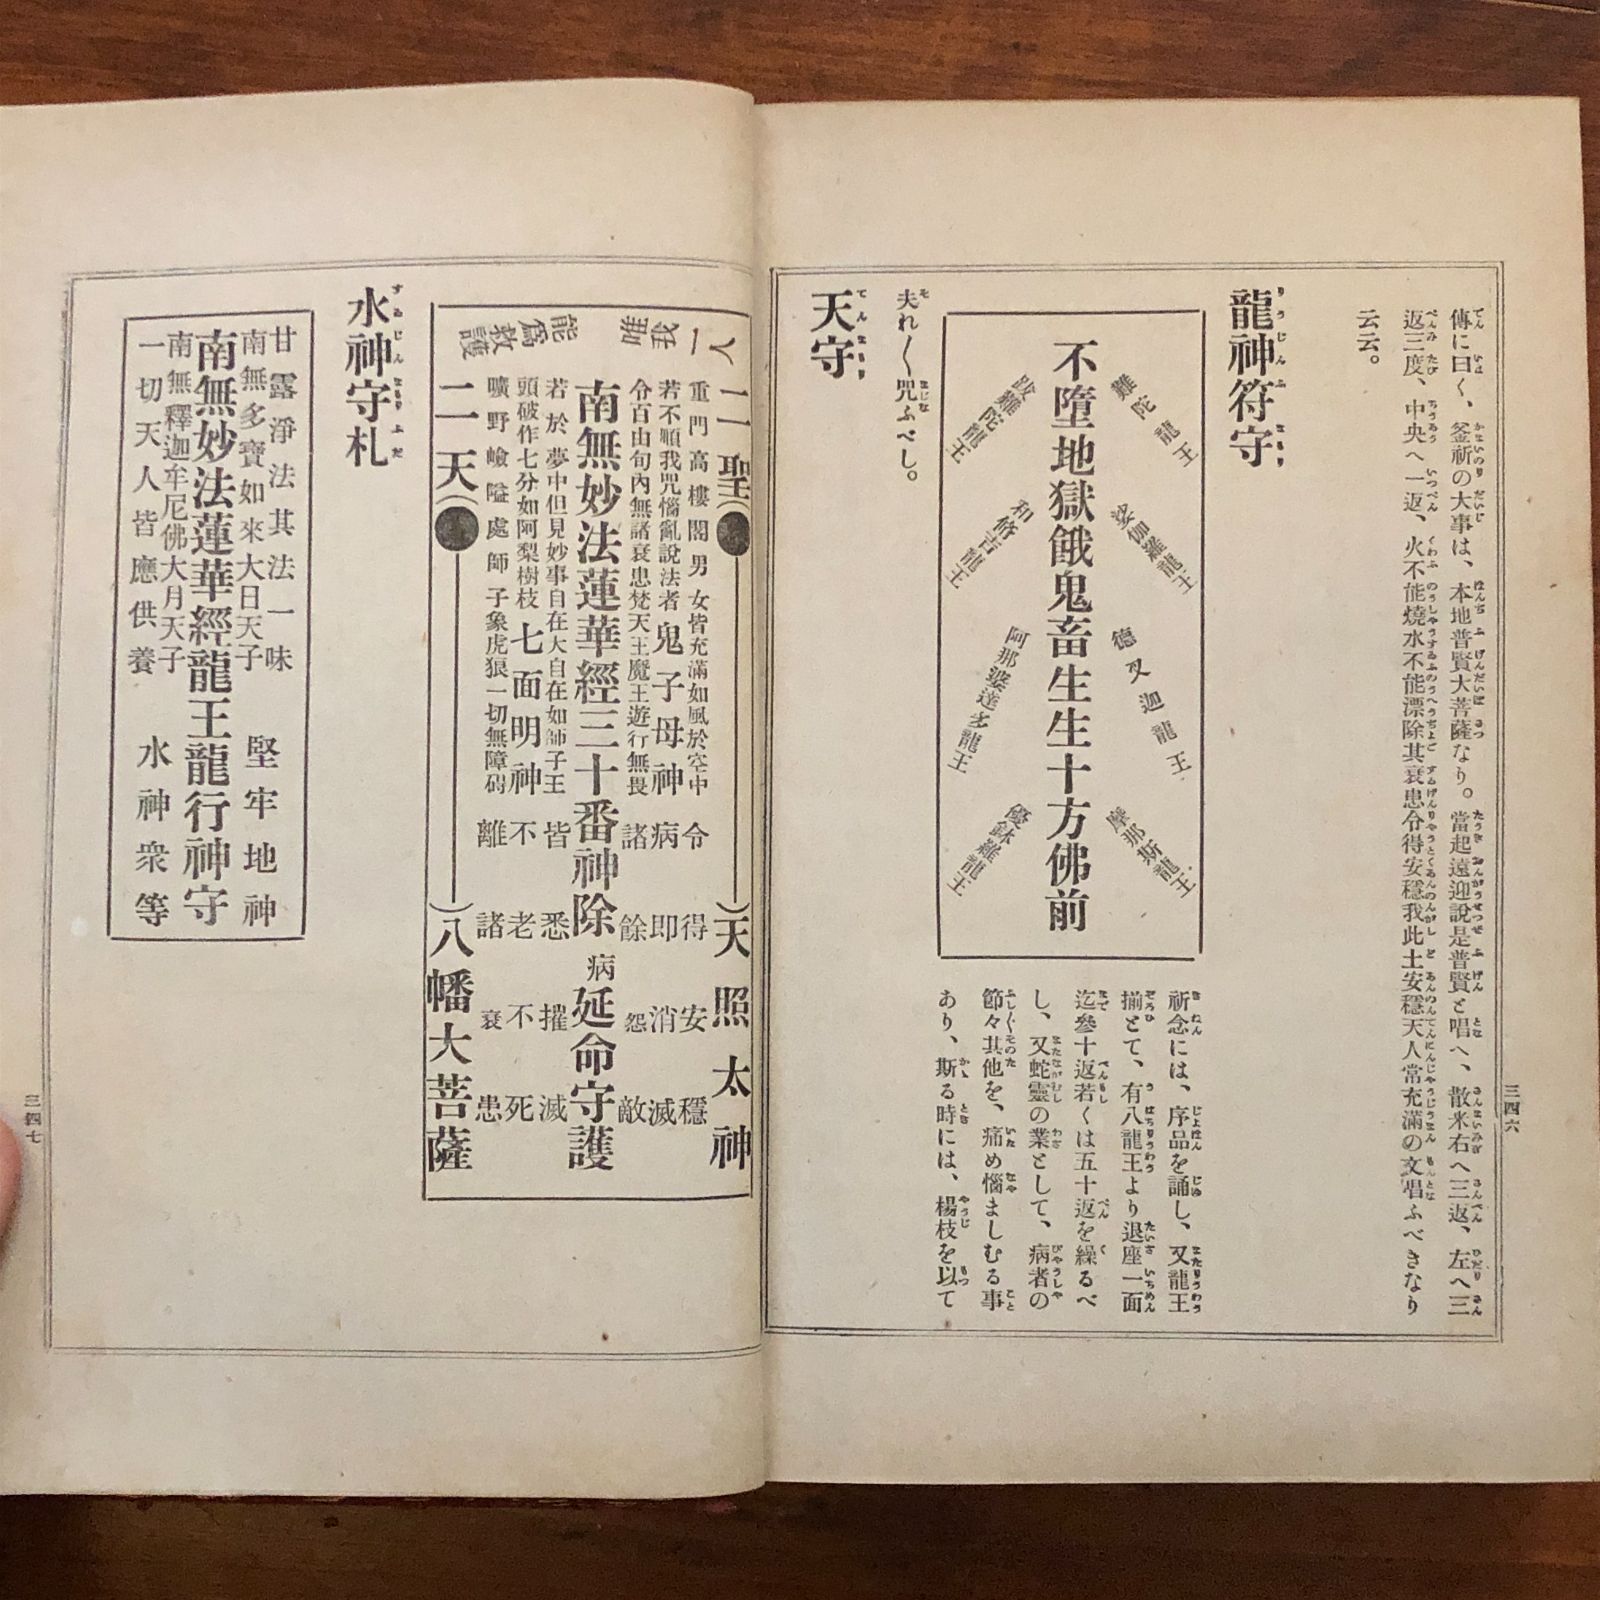 傳に曰く、釜祈の大事は、本地普賢大菩薩なり。當起遠迎說是普賢と唱へ、散米右へ三返、左へ三
返三度、中央へ一返、火不能燒水不能漂除其衰患令得安穩我此土安穩天人常充滿の文唱ふべきなり
云云。
龍神符守
難陀龍王
娑伽羅龍王
德叉迦龍王
摩那斯龍王
不墮地獄餓鬼畜生生十方佛前
跋難陀龍王
和修吉龍王
阿那婆達多龍王
優鉢羅龍王
祈念には、序品を誦し、又龍王
揃とて、有八龍王より退座一面
迄參十返若くは五十返を繰るべ
し、又蛇靈の業として、病者の
節々其他を、痛め惱ましむる事
あり、斯る時には、楊枝を以て
夫れ〱咒ふべし。
天守
三四六
二聖
天照太神
重門高樓閣男女皆充滿如風於空中
令得安穩
若不順我咒惱亂說法者鬼子母神
病即消滅
令百由旬內無諸衰患梵天王魔王遊行無畏
諸餘怨敵
南無妙法蓮華經三十番神除病延命守護
若於夢中但見妙事自在大自在如師子王
皆悉摧滅
頭破作七分如阿梨樹枝七面明神
不老不死
曠野嶮隘處師子象虎狼一切無障碍
離諸衰患
能爲救護
二天
八幡大菩薩
水神守札
甘露淨法其法一味
南無多寶如來大日天子
堅牢地神
南無妙法蓮華經龍王龍行神守
南無釋迦牟尼佛大月天子
一切天人皆應供養
水神衆等
三四七